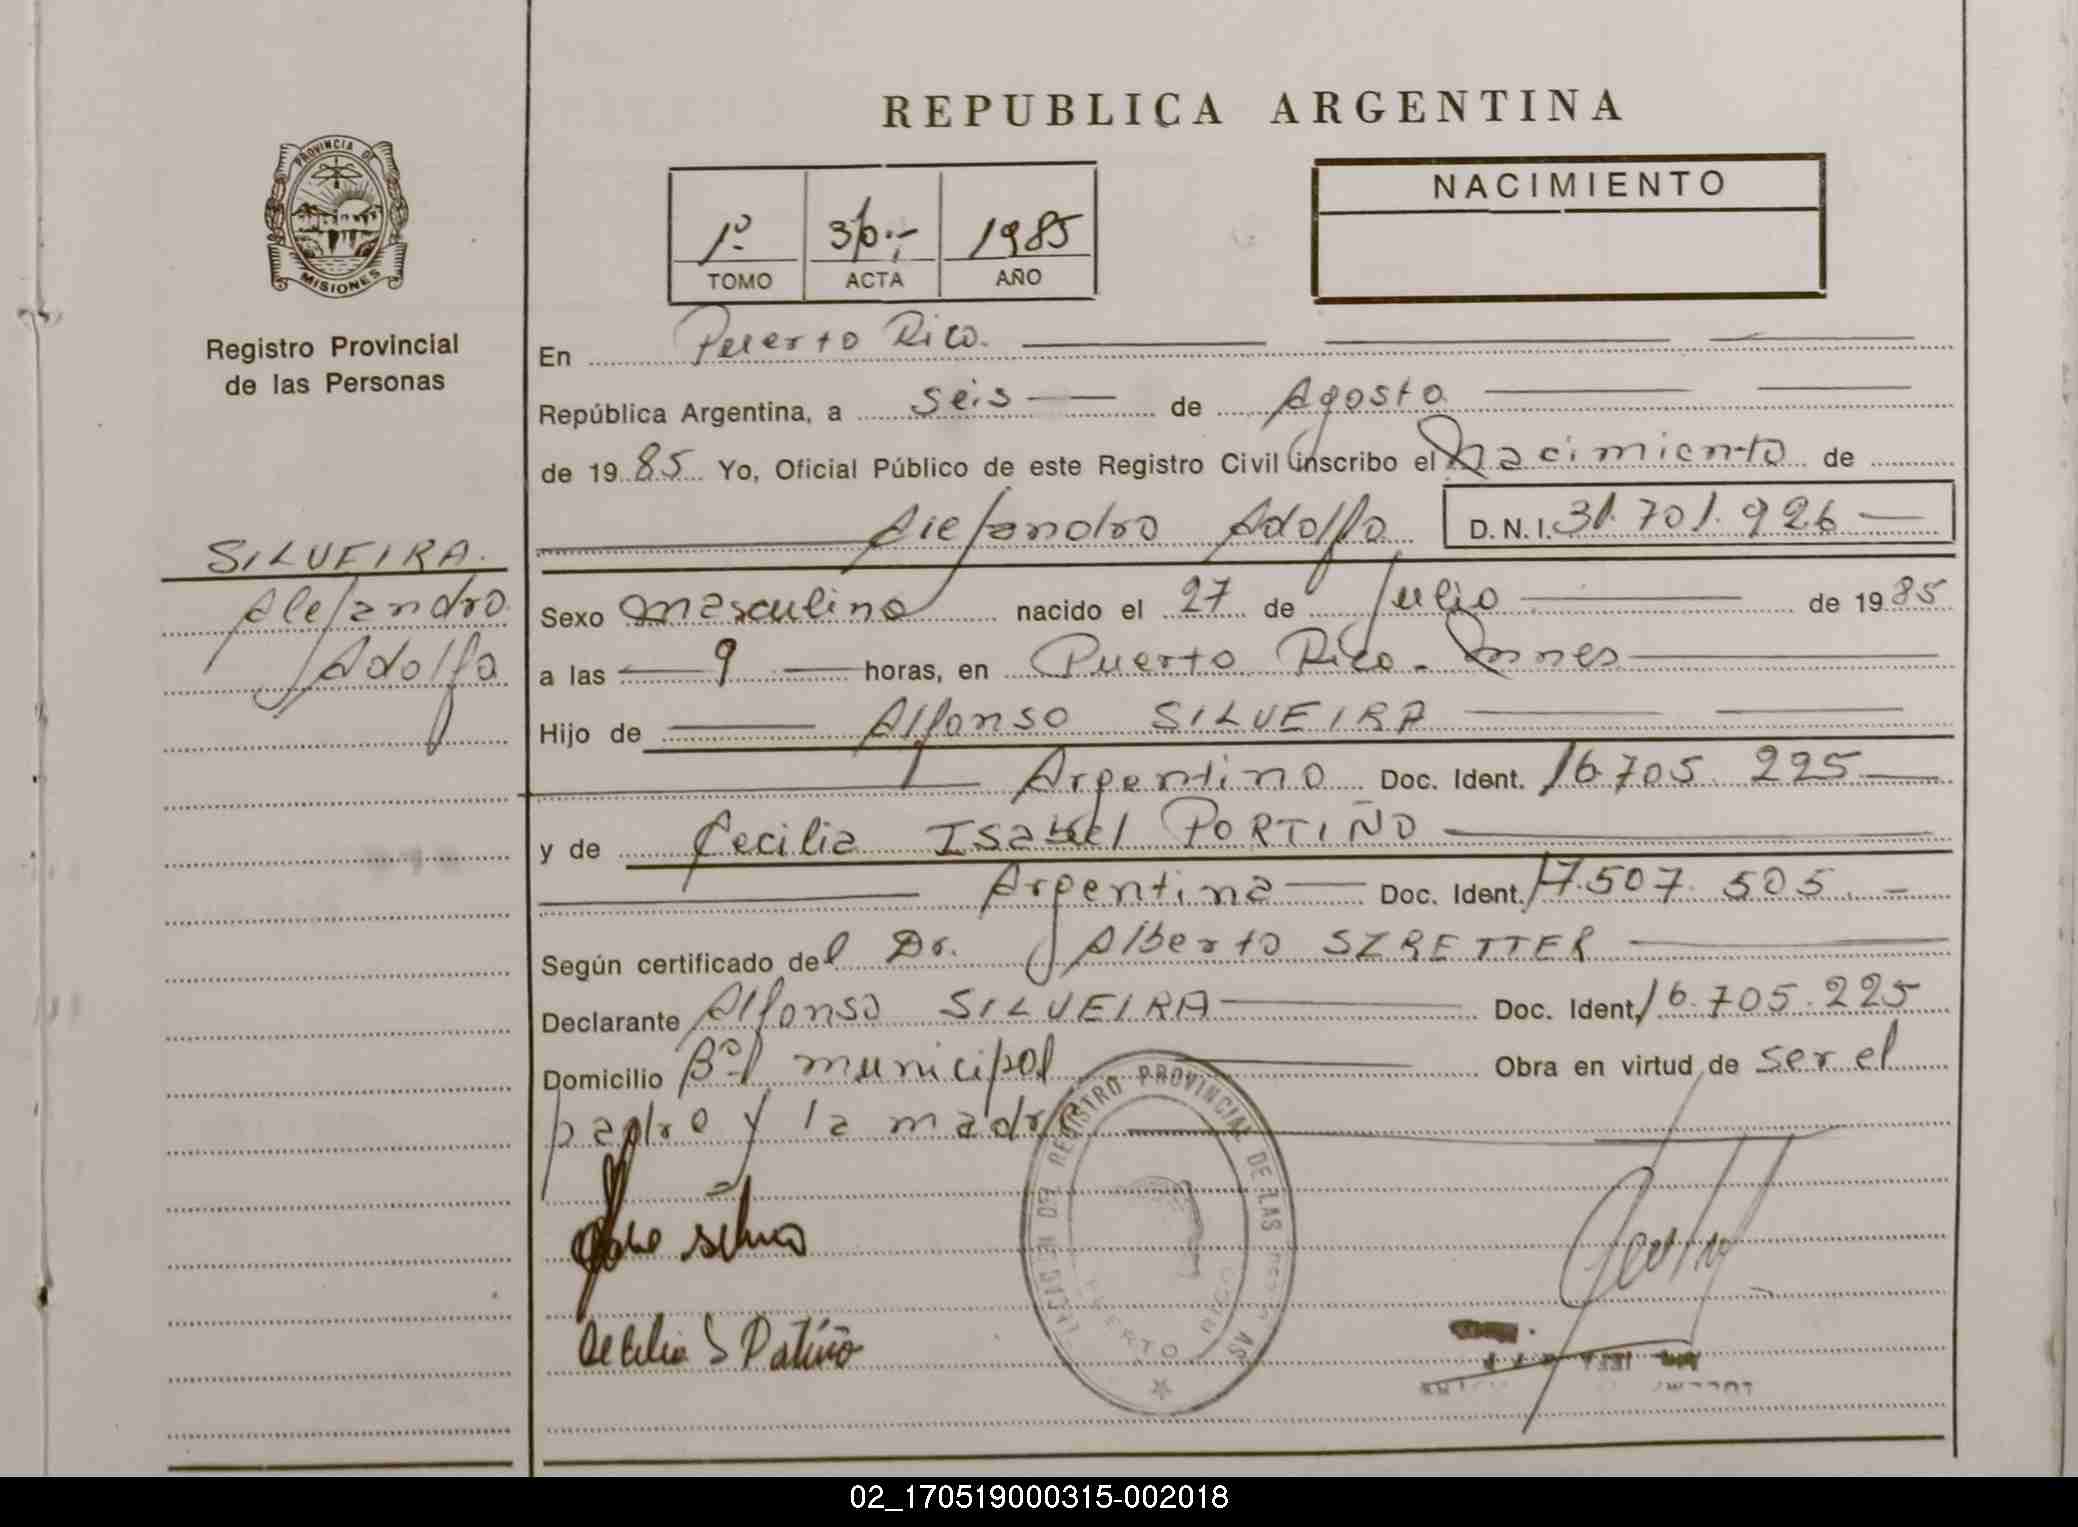 REPUBLICA ARGENTINA
PROVINCIA DE
MISIONES
Registro Provincial
de las Personas
1º
TOMO
ACTA
1985
AÑO
NACIMIENTO
En Puerto Rico.
República Argentina, a seis de Agosto
de 1985 Yo, Oficial Público de este Registro Civil inscribo el Nacimiento de
Alejandro Adolfo D. N. I. 31.701.926
SILVEIRA.
Alejandro
Adolfo
Sexo masculino nacido el 27 de Julio de 1985
a las 9 horas, en Puerto Rico - Mnes
Hijo de Alfonso SILVEIRA
Argentino Doc. Ident. 16.705.225
y de Cecilia Isabel PORTIÑO
Argentina Doc. Ident. 17.507.505
Según certificado del Dr. Alberto SZRETTER
Declarante Alfonso SILVEIRA Doc. Ident. 16.705.225
Domicilio Bº municipal Obra en virtud de ser el
padre y la madre
REGISTRO PROVINCIAL DE LAS
PUERTO RICO
02_170519000315-002018